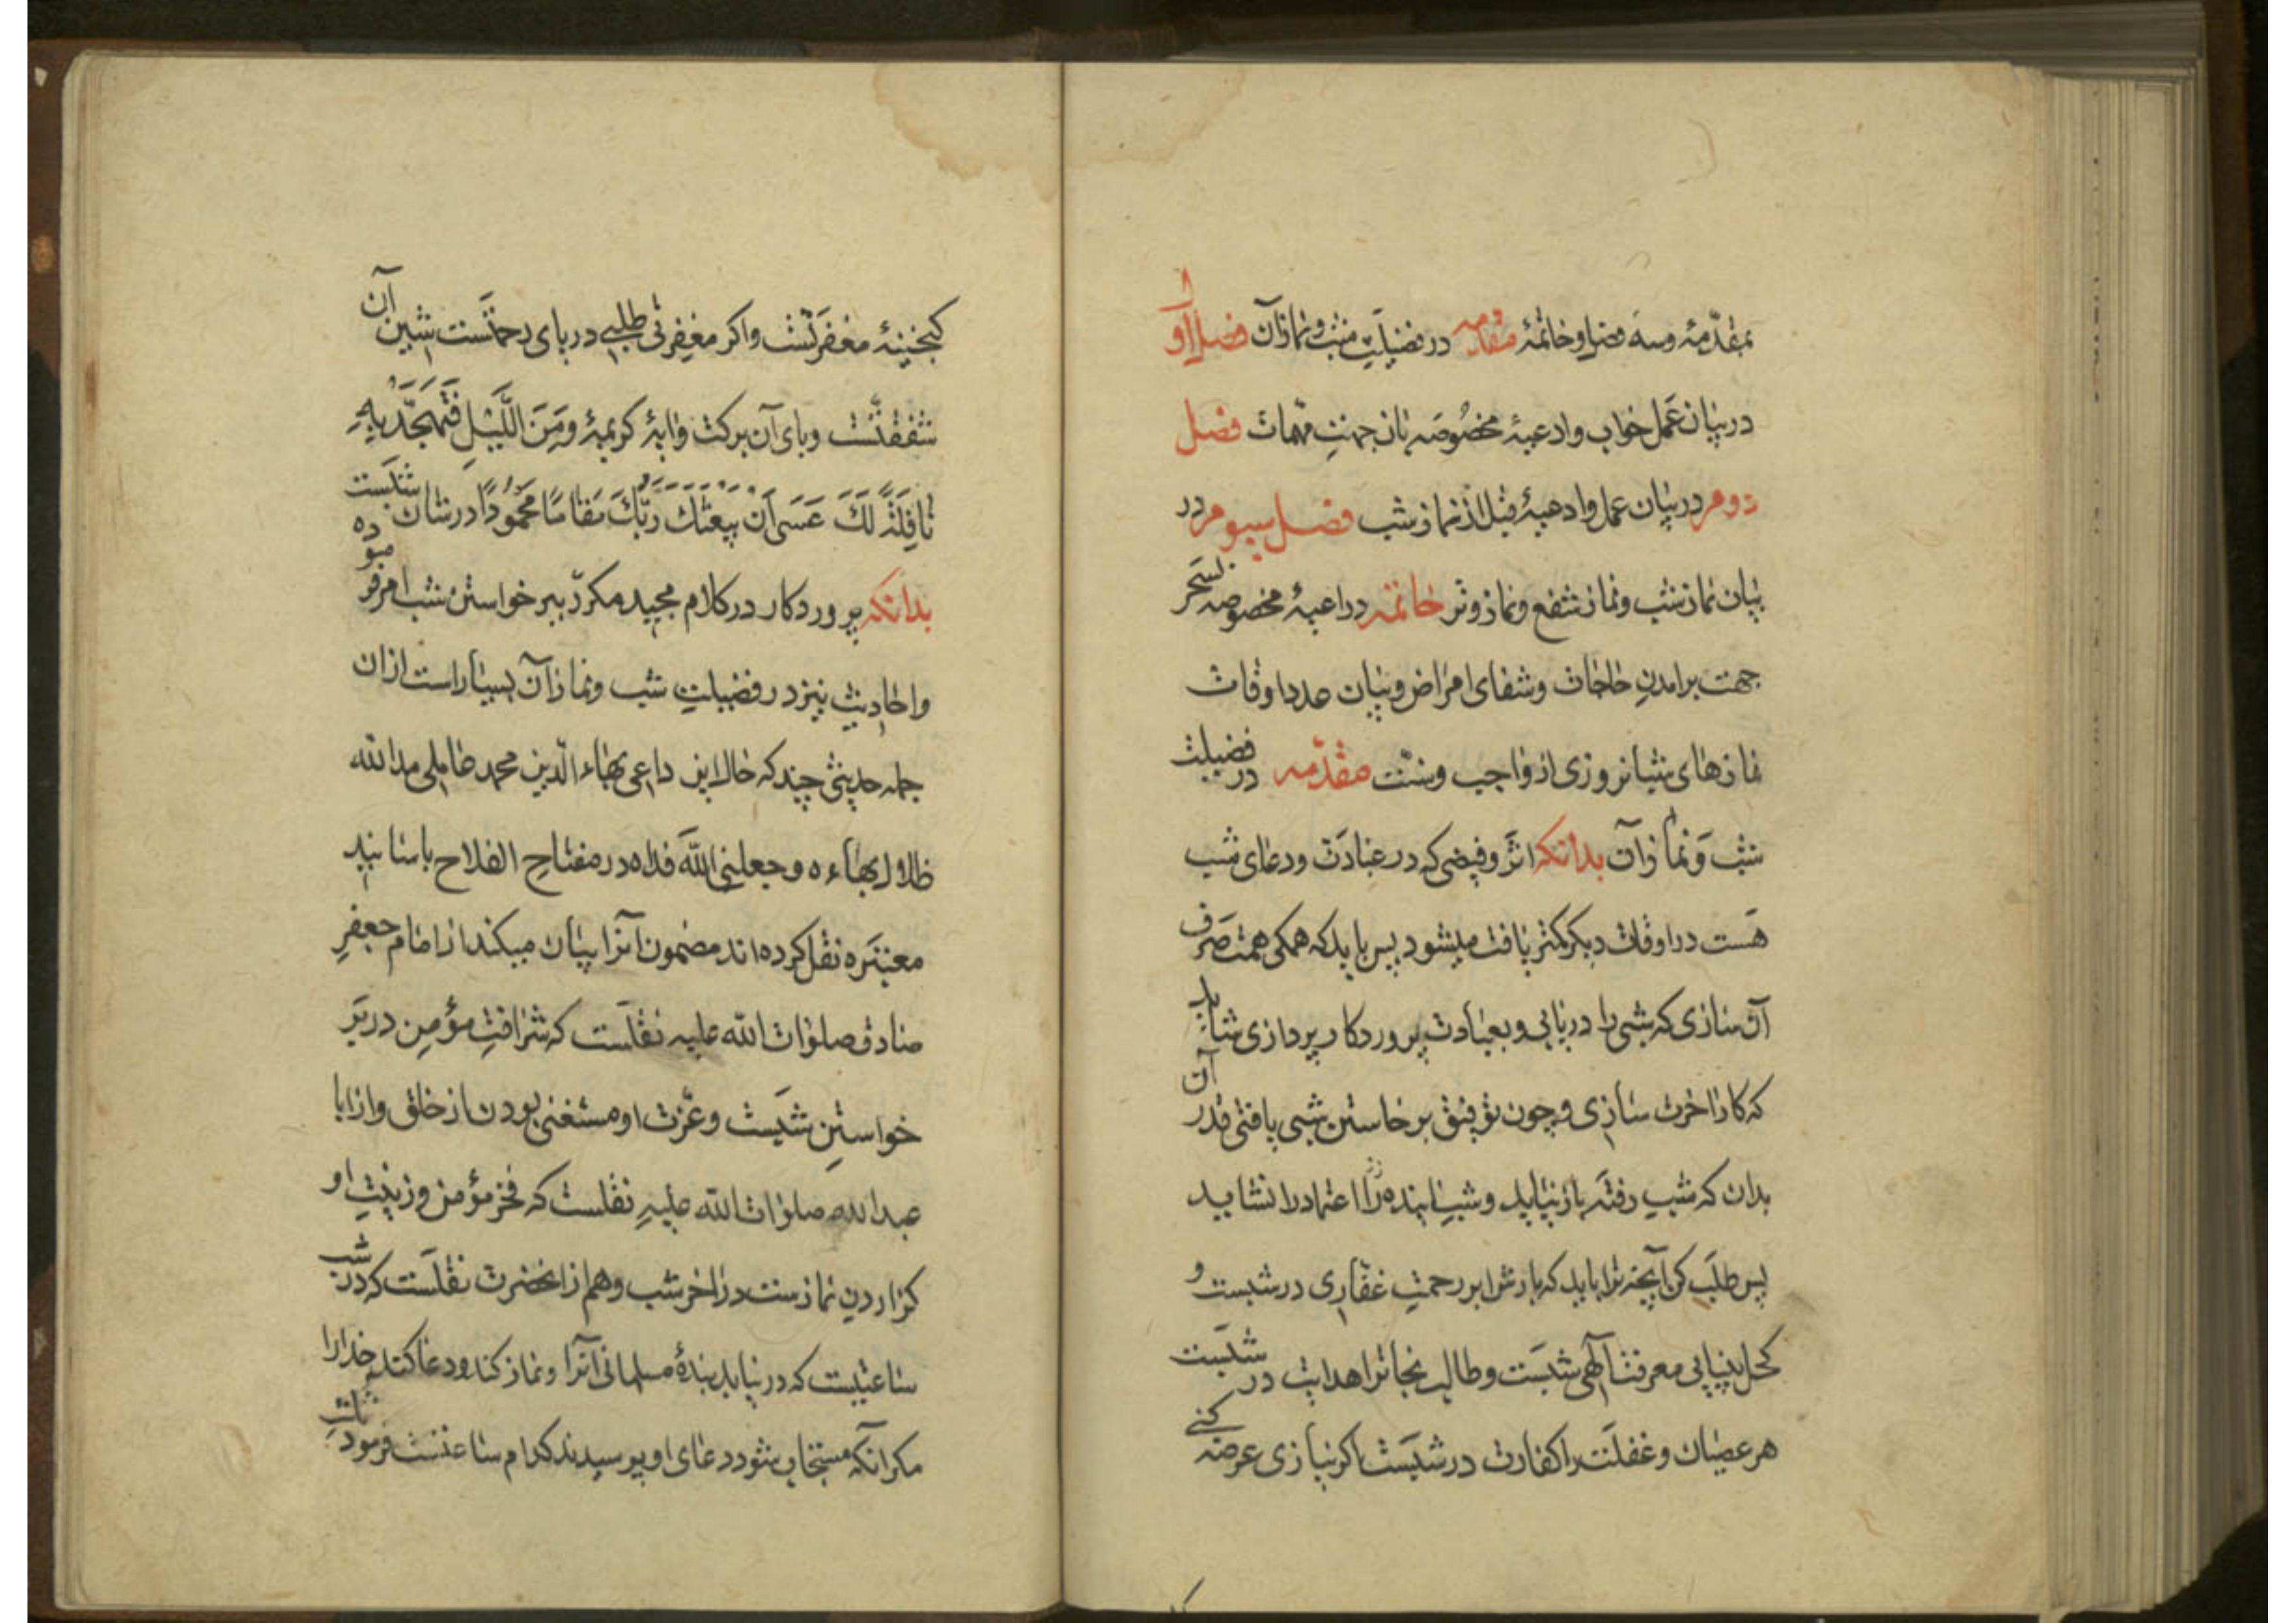 بمقدّمهٔ وسه فصل وخاتمهٔ مقدمه در فضیلت شب ونماز آن فصل اول
در بیان عمل خواب وادعیهٔ مخصوصه بان جهت مهمات فصل
دوم در بیان عمل وادعیهٔ قبل از نماز شب فصل سیوم در
بیان نماز شب ونماز شفع ونماز وتر خاتمه در ادعیهٔ مخصوصه بسحر
جهت برامدن حاجات وشفای امراض وبیان عدد اوقات
نمازهای شبانروزی از واجب وسنّت مقدّمه در فضیلت
شب ونماز آن بدانکه اثر وفیضی که در عبادت ودعای شب
هست در اوقات دیکر کمتر یافت میشود پس باید که همکی همت صرف
آن سازی که شبی را دریابی وبعبادت پروردکار پردازی شاید
که کار اخرت سازی وچون توفیق برخاستن شبی یافتی قدر آن
بدان که شب رفته باز نیاید وشب اینده را اعتماد را نشاید
پس طلب کن آنچه ترا باید که بارش ابر رحمت غفاری در شبست و
کحل بینایی معرفت آلهی شبست وطالب نجاترا هدایت در شبست
هر عصیان وغفلت را کفارت در شبست اکر نیازی عرضه کنے
کنجینهٔ مغفرتست واکر مغفرتی طلبی دریای رحمتست شب آن
شفقتست وبای آن برکت وایهٔ کریمهٔ وَمِنَ اللَّیْلِ فَتَهَجَّدْ بِهِ
نافِلَةً لَکَ عَسَی اَن یَبعَثَکَ رَبُّکَ مَقامًا مَحْمُودًا در شان شبست
بدانکه پروردکار در کلام مجید مکرّر ببر خواستن شب امر فرموده
واحادیث نیز در فضیلت شب ونماز آن بسیار است از ان
جمله حدیثی چند که خال این داعی بهاء الدین محمد عاملی مد الله
ظلال بهاءه وجعلنی الله فداه در مفتاح الفلاح باسانید
معتبره نقل کرده اند مضمون انرا بیان میکند از امام جعفر
صادق صلوات الله علیه نقلست که شرافت مؤمن در بر
خواستن شبست وعزت او مستغنی بودن از خلق واز ابا
عبد الله صلوات الله علیه نقلست که فخر مؤمن وزینت او
کزاردن نماز ست در اخر شب وهم از انحضرت نقلست که در شب
ساعتیست که در نیابد بندهٔ مسلمانی آنرا ونماز کند ودعا کند خدارا
مکر آنکه مستجاب شود دعای او پرسیدند کدام ساعتست فرمود